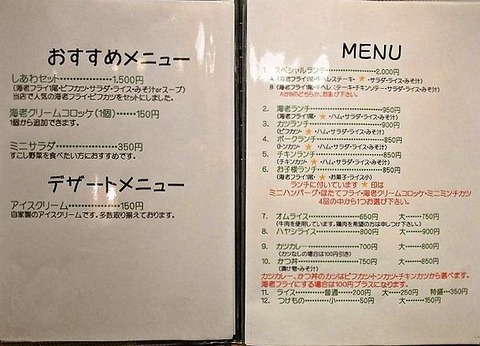 おすすめメニュー
しあわセット･･････････････････1,500円
(海老フライ1尾･ビフカツ･サラダ･ライス･みそ汁orスープ)
当店で人気の海老フライ･ビフカツをセットにしました。
海老クリームコロッケ(1個)･･････150円
1個から追加できます。
ミニサラダ･･････････････････350円
すこし野菜を食べたい方におすすめです。
デザートメニュー
アイスクリーム･･････････････150円
自家製のアイスクリームです。多数取り揃えております。
MENU
1. スペシャルランチ･･････････････2,000円
A (海老フライ1尾･牛ヘレステーキ･★･サラダ･ライス･みそ汁)
B (海老フライ1尾･牛ヘレステーキ･チキンソテー･サラダ･ライス･みそ汁)
AかBのどちらか、お選び下さい。
2. 海老ランチ･･････････････950円
(海老フライ･★･ハム･サラダ･ライス･みそ汁)
3. カツランチ･･････････････900円
(ビフカツ･★･ハム･サラダ･ライス･みそ汁)
4. ポークランチ･･････････････850円
(トンカツ･★･ハム･サラダ･ライス･みそ汁)
5. チキンランチ･･････････････850円
(チキンカツ･★･ハム･サラダ･ライス･みそ汁)
6. お子様ランチ･･････････････850円
(海老フライ1尾･★･お菓子･ライス小)
ランチに付いています ★ 印は
ミニハンバーグ･ほたてフライ･海老クリームコロッケ･ミニミンチカツ
4品の中から1つお選び下さい。
7. オムライス･･････････650円 大･････750円
(牛肉を使用しています。鶏肉を希望の方は申しつけ下さい)
8. ハヤシライス･･････････800円 大･････900円
9. カツカレー･･････････700円 大･････800円
(カツなしの場合は100円引き)
10. かつ丼･･････････750円 大･････850円
(漬け物･みそ汁)
カツカレー、かつ丼のカツはビフカツ･トンカツ･チキンカツから選べます。
海老フライにする場合は100円プラスになります。
11. ライス･･････普通･･･200円 大･････250円 特盛･･･350円
12. つけもの･･････小･････50円 大･････150円